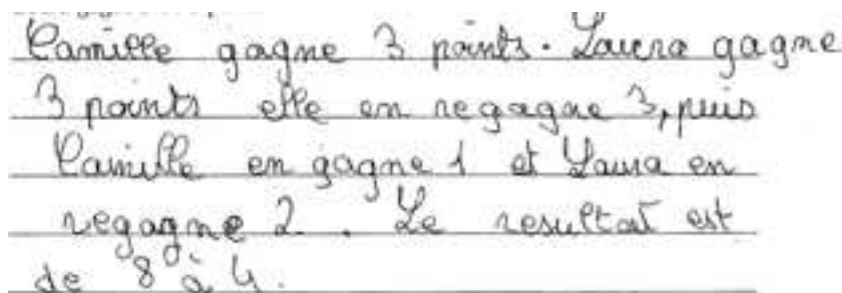 Camille gagne 3 points. Laura gagne
3 points elle en regagne 3, puis
Camille en gagne 1 et Laura en
regagne 2. Le resultat est
de 8 à 4.